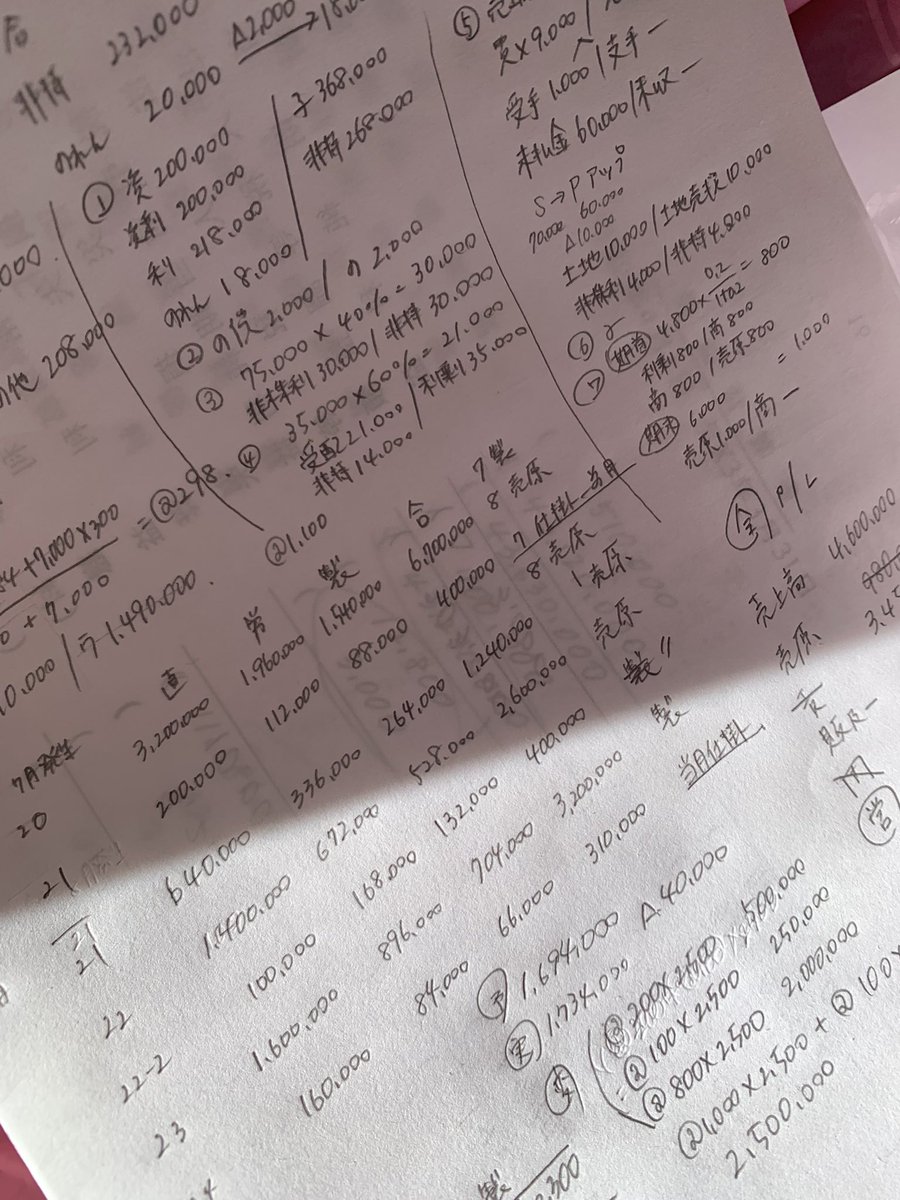 非持 232,000
のれん 20,000 △2,000 → 18,0
① 資 200,000 / 子 368,000
資剰 200,000 非持 268,000
利 218,000
のれん 18,000
② の償 2,000 / の 2,000
③ 75,000 × 40% = 30,000
非株利 30,000 / 非持 30,000
④ 35,000 × 60% = 21,000
受配 21,000 / 利剰 35,000
非持 14,000
000
の他 208,000
⑤ 売
買 × 9,000 /
受手 1,000 / 支手 〃
未払金 60,000 / 未収 〃
S → P アップ
70,000 60,000
△10,000
土地 10,000 / 土地売損 10,000
非株利 4,000 / 非持 4,000
⑥
⑦ 期首 4,800 × 0.2/1+0.2 = 800
利剰 800 / 商 800
商 800 / 売原 800
期末 6,000 = 1,000
売原 1,000 / 商 〃
4 + 7,000 × 300 = @298.
0 + 7,000 @1,100
0,000 / 1,490,000.
直 労 製 合
7月発生 3,200,000 1,960,000 1,540,000 6,700,000 7 製
8 売原
20 200,000 112,000 88,000 400,000 7 仕掛_当月
8 売原
21 640,000 336,000 264,000 1,240,000 1 売原
21 1,400,000 672,000 528,000 2,600,000 売原
22 100,000 168,000 132,000 400,000 製〃
22-2 1,600,000 896,000 704,000 3,200,000 製
23 160,000 84,000 66,000 310,000 当月仕掛
全 P/L
売上高 4,600,000
売原 3,4
販
営
予 1,694,000 △40,000
実 1,734,000
@200 × 2,500 500,000
= @100 × 2,500 250,000
@800 × 2,500 2,000,000
@1,000 × 2,500 + @100 ×
2,500,000
製